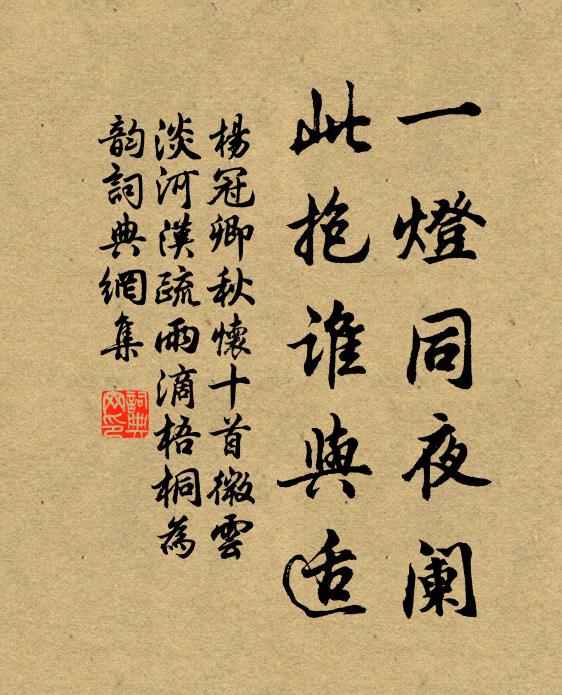 一燈同夜阑
此抱谁與适
楊冠卿秋懷十首微雲
淡河漢疏雨滴梧桐為
韵詞典網集
詞典
网印